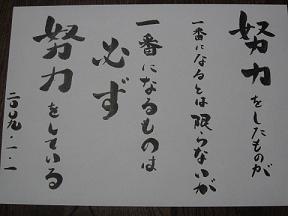 努力をしたものが
一番になるとは限らないが
一番になるものは
必ず
努力をしている
二〇〇九・一・一